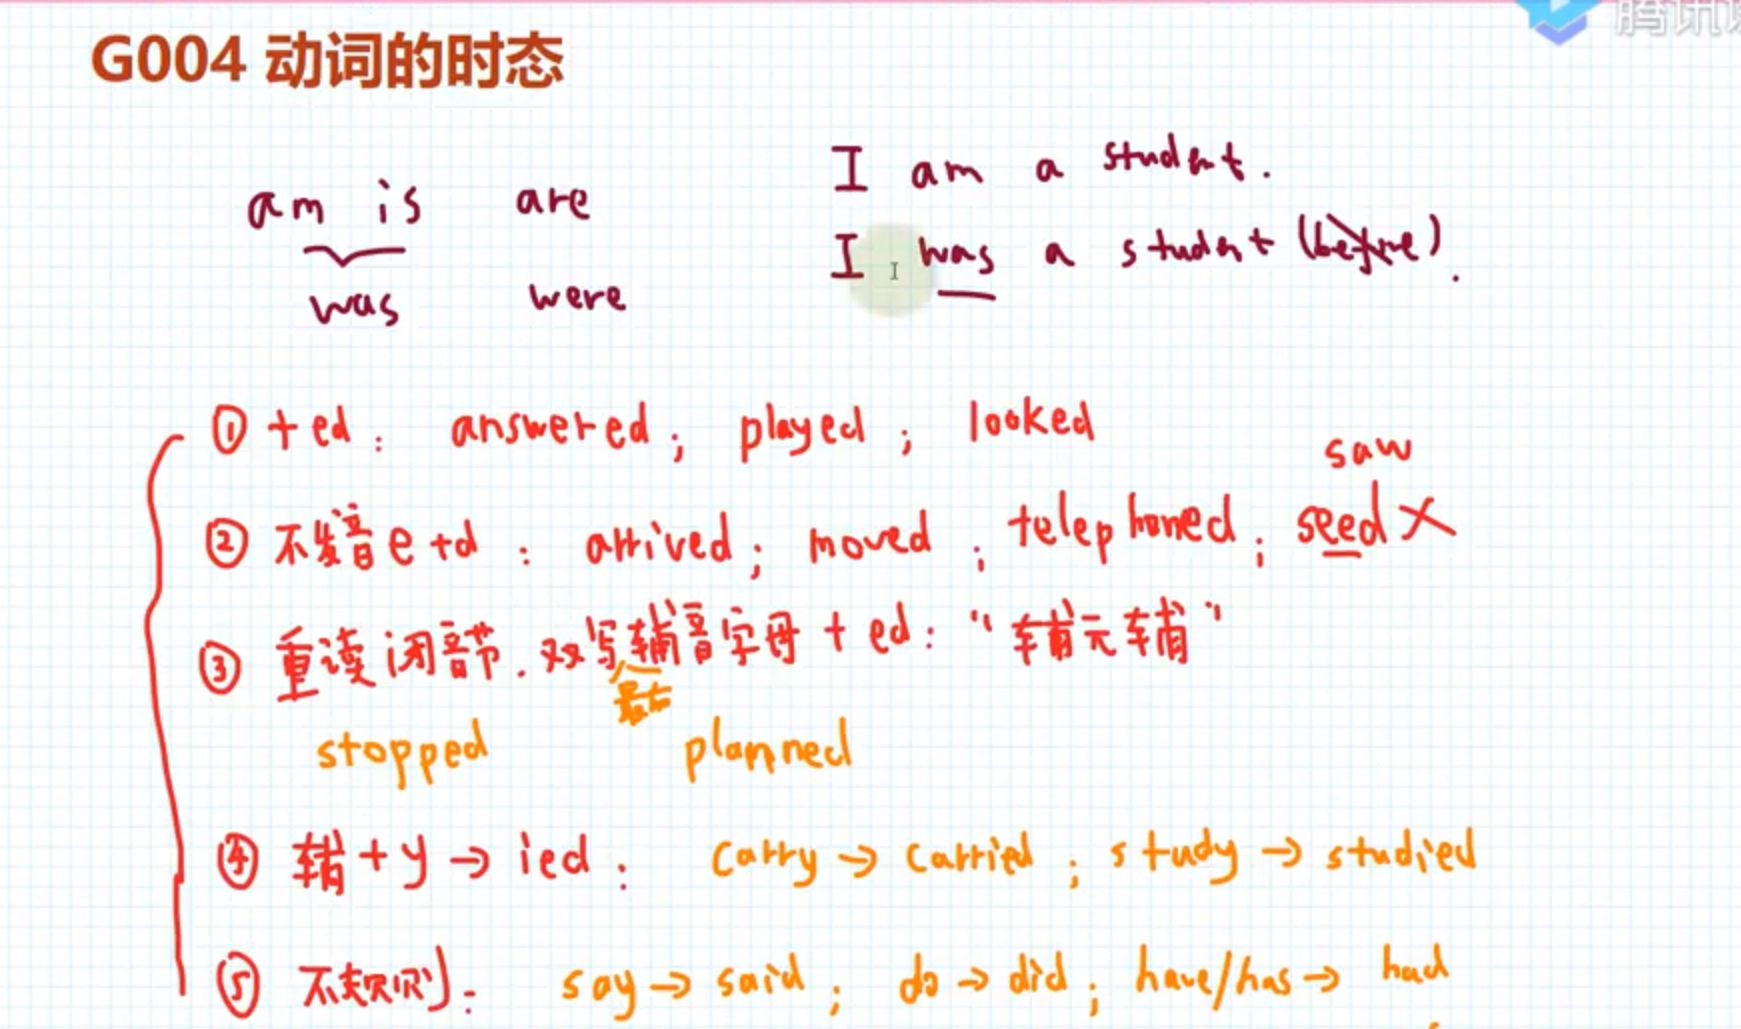 腾讯课
G004 动词的时态
am is are
was were
I am a student.
I was a student (before).
① + ed: answered; played; looked
saw
② 不发音e +d: arrived; moved; telephoned; seed ×
③ 重读闭音节. 双写辅音字母 + ed: "辅元辅"
最后
stopped planned
④ 辅+y → ied: carry → carried; study → studied
⑤ 不规则: say → said; do → did; have/has → had